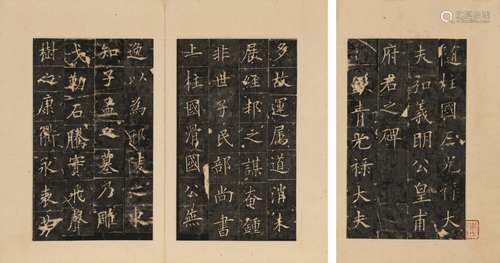 隨柱國左光祿大
夫弘義明公皇甫
府君之碑
銀青光祿大夫
多故運属道消未
展經邦之謀奄鍾
非世子民部尚書
上柱國滑國公無
逸以為邢陵之東
知子孟之墓乃雕
戈勒石騰實飛聲
樹之康衢永表芳